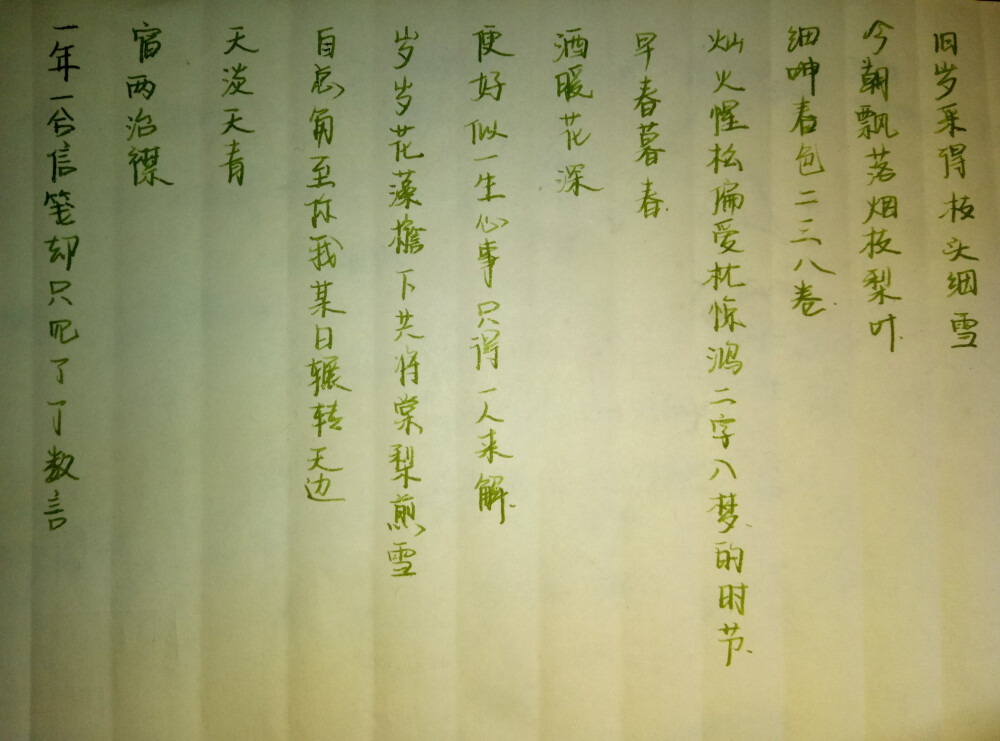 旧岁采得枝头细雪
今朝飘落烟枝梨叶.
细呻春包二三八卷.
灿火惺松偏爱枕惊鸿二字八梦的时节.
早春暮春.
酒暖花深
便好似一生心事只得一人来解.
岁岁花藻檐下共将棠梨煎雪
自总角至你我某日辗转天边
天淡天青
宿两治襟
一年一兮信笺却只呢了了数言